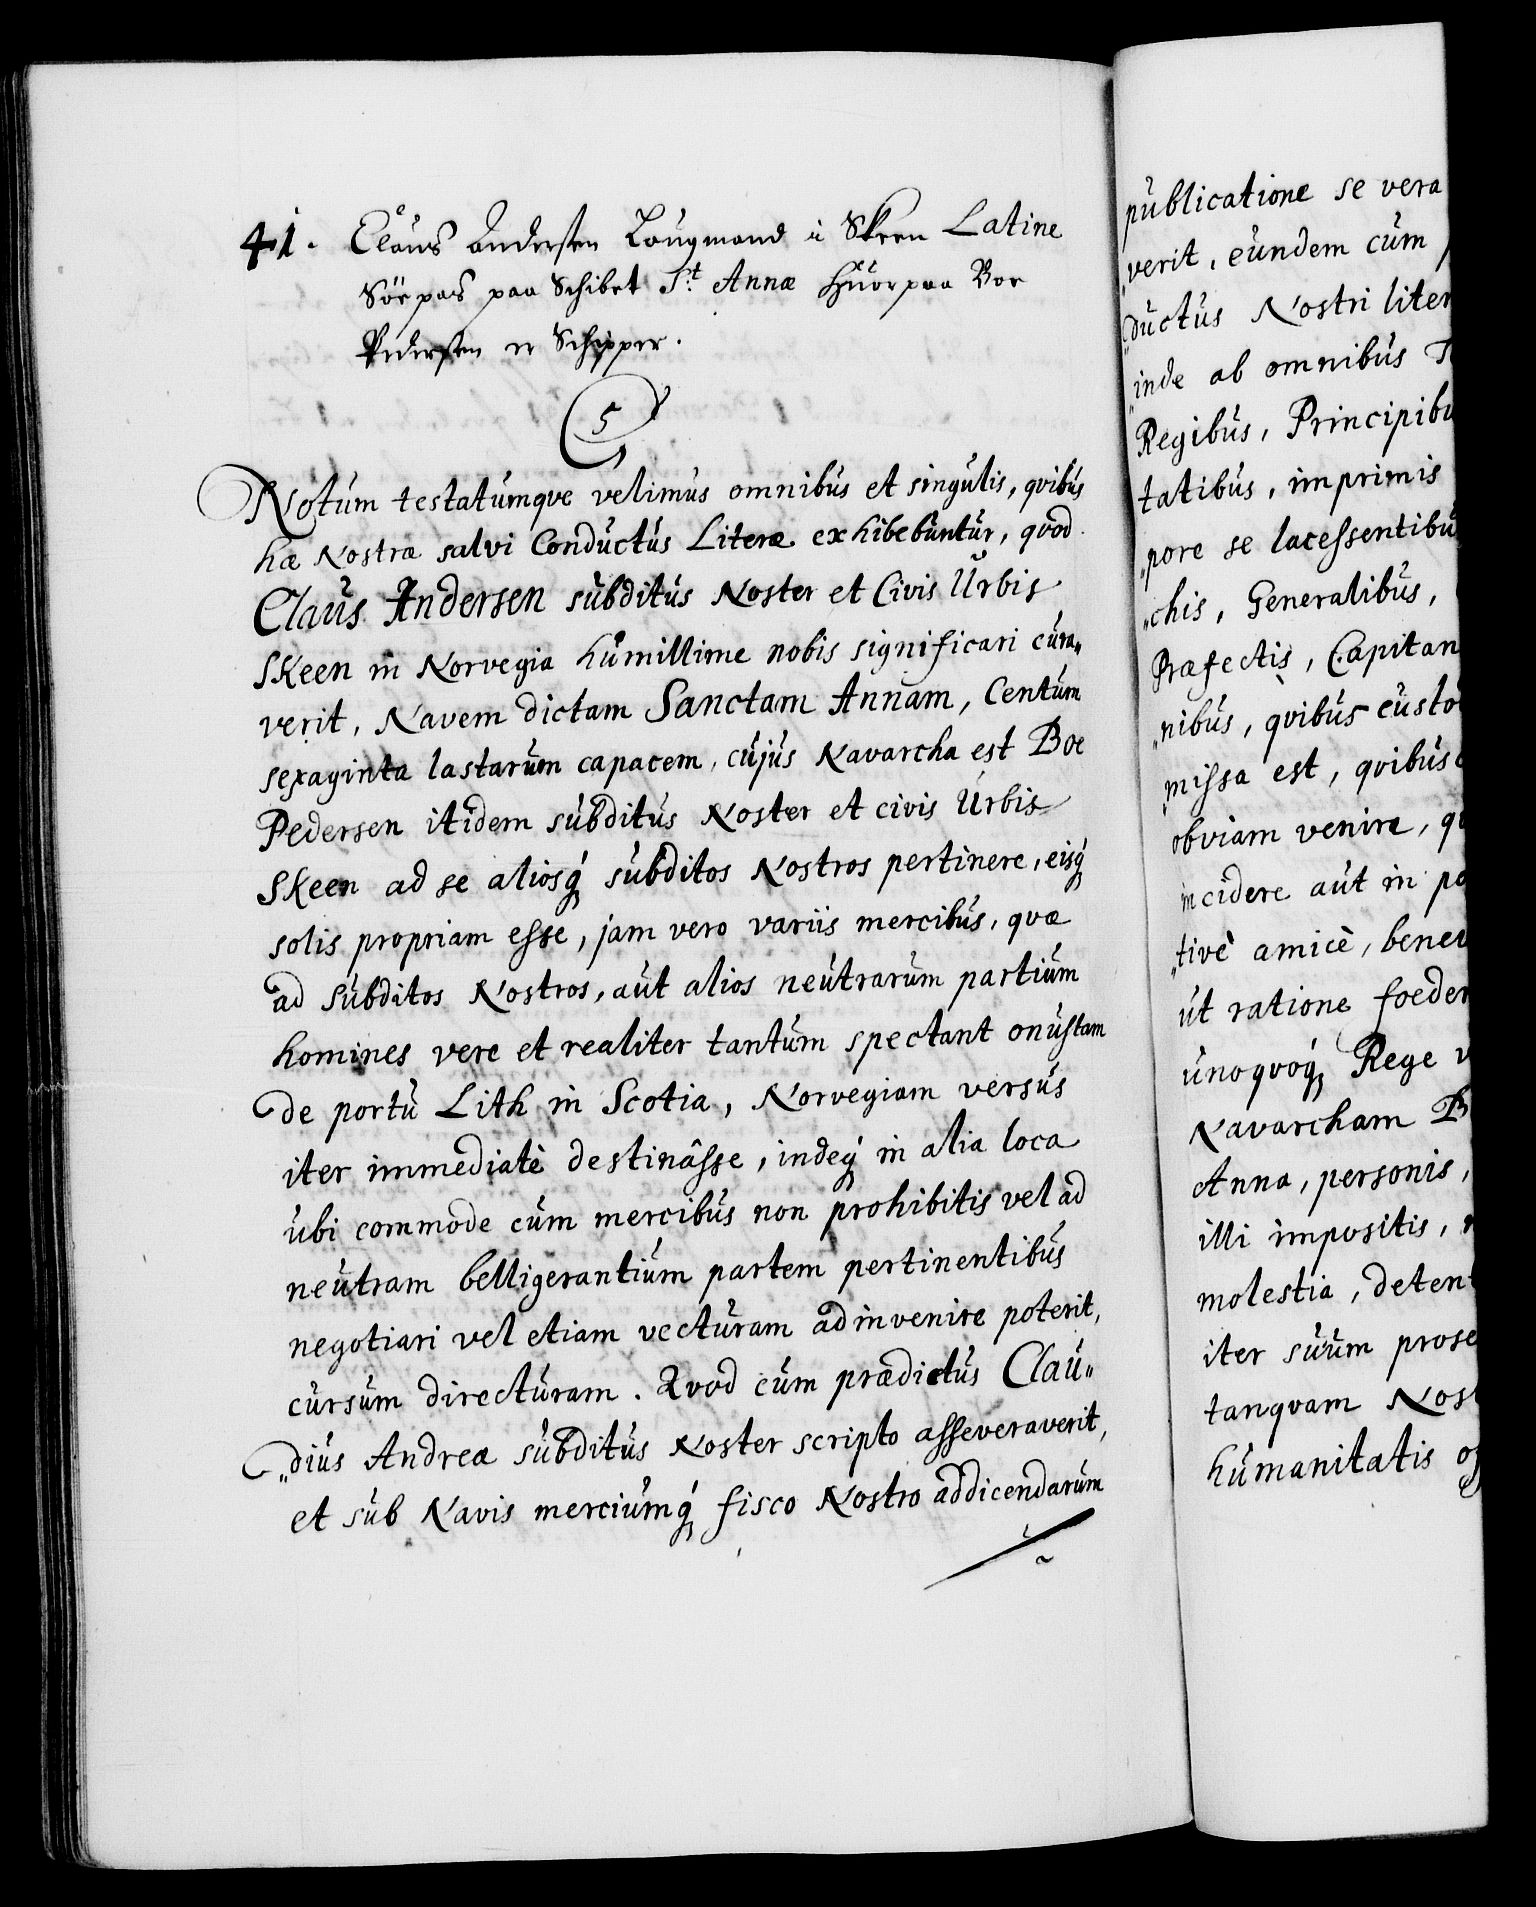 41. Claus Andersen Laugmand i Skeen Latine
Söepas paa Schibet St. Annæ Huorpaa Boe
Pedersen er Schipper.
5
Notum testatumqve velimus omnibus et singulis, qvibus
hæ Nostræ salvi Conductus Literæ exhibebuntur, qvod
Claus Andersen subditus Noster et Civis Urbis
Skeen in Norvegia humillime nobis significari cura„
verit, Navem dictam Sanctam Annam, Centum
sexaginta lastarum capacem, cujus Navarcha est Boe
Pedersen itidem subditus Noster et civis Urbis
Skeen ad se aliosq́ subditos Nostros pertinere, eisq́
solis propriam esse, jam vero variis mercibus, qvæ
ad subditos Nostros, aut alios neutrarum partium
homines vere et realiter tantum spectant onustam
de portu Lith in Scotia, Norvegiam versus
iter immediatè destinâsse, indeq́ in alia loca
ubi commode cum mercibus non prohibitis vel ad
neutram belligerantium partem pertinentibus
negotiari vel etiam vecturam adinvenire poterit,
cursum directuram. Qvod cum prædictus Clau„
„dius Andreæ subditus Noster scripto asseveraverit,
et sub Navis merciumq́ fisco Nostro addicendarum
publicatione se vera
„verit, eundem cum
„ductus Nostri liter
„inde ab omnibus
Regibus, Principibu
tatibus, imprimis
„pore se lacessentibu
„chis, Generalibus,
Præfectis, Capitan
„nibus, qvibus custo
„missa est, qvibus
obviam venire, qu
incidere aut in po
„tivè amicè, benev
ut ratione foeder
unoqvoq́ Rege v
Navarcham B
Anna, personis,
illi impositis,
molestia, detent
iter suum prose
tanqvam Nost
humanitatis of